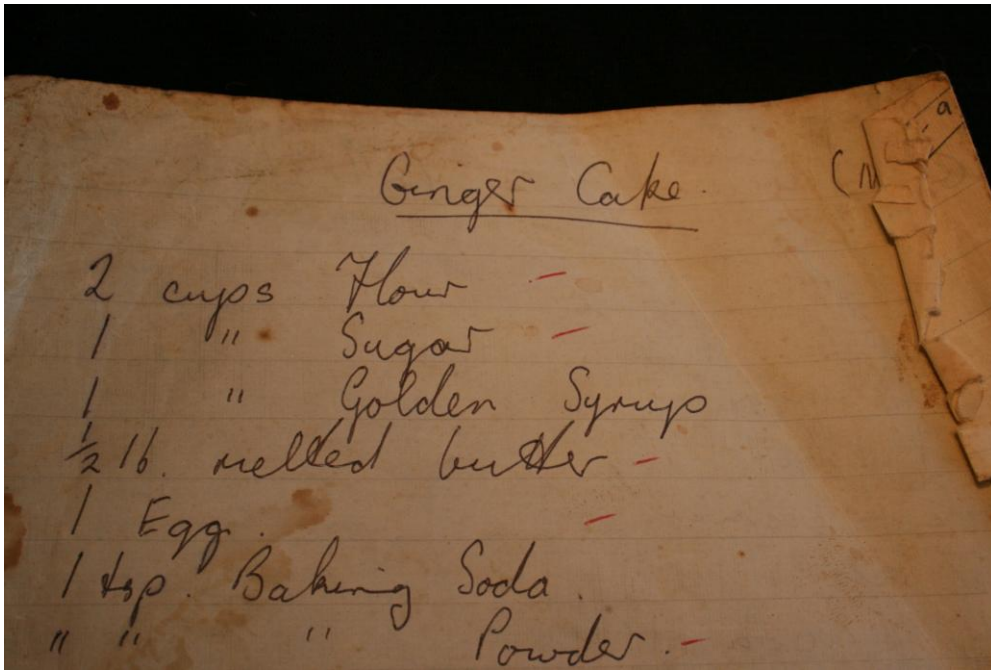 Ginger Cake.
2 cups Flour -
1 " Sugar -
1 " Golden Syrup
½ lb. melted butter -
1 Egg. -
1 tsp. Baking Soda.
" " " Powder. -